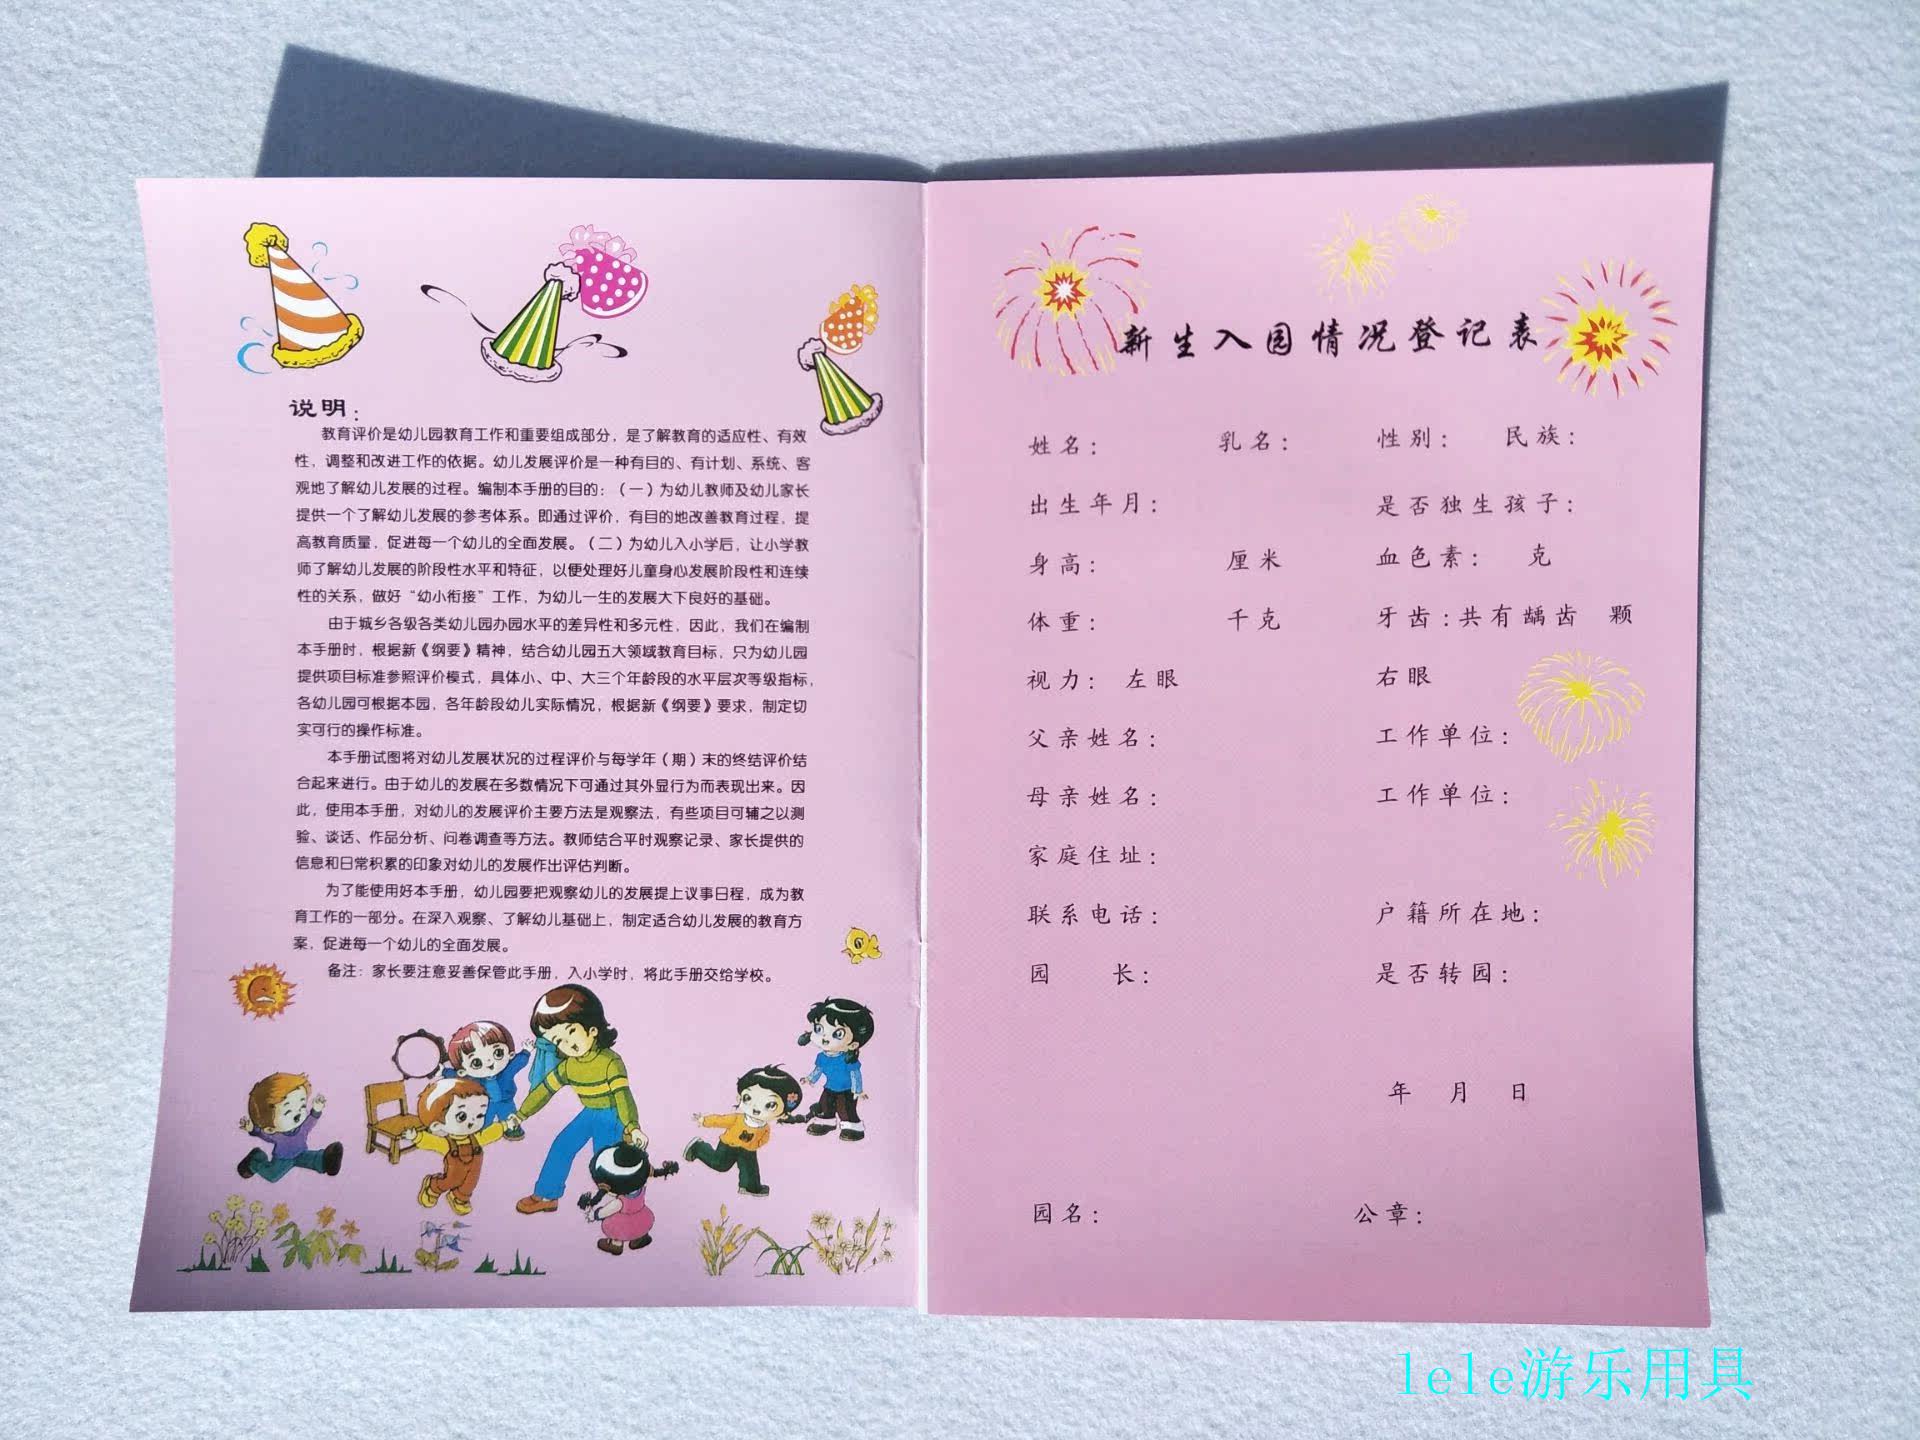 说明：
教育评价是幼儿园教育工作和重要组成部分，是了解教育的适应性、有效
性，调整和改进工作的依据。幼儿发展评价是一种有目的、有计划、系统、客
观地了解幼儿发展的过程。编制本手册的目的：（一）为幼儿教师及幼儿家长
提供一个了解幼儿发展的参考体系。即通过评价，有目的地改善教育过程，提
高教育质量，促进每一个幼儿的全面发展。（二）为幼儿入小学后，让小学教
师了解幼儿发展的阶段性水平和特征，以便处理好儿童身心发展阶段性和连续
性的关系，做好“幼小衔接”工作，为幼儿一生的发展大下良好的基础。
由于城乡各级各类幼儿园办园水平的差异性和多元性，因此，我们在编制
本手册时，根据新《纲要》精神，结合幼儿园五大领域教育目标，只为幼儿园
提供项目标准参照评价模式，具体小、中、大三个年龄段的水平层次等级指标，
各幼儿园可根据本园，各年龄段幼儿实际情况，根据新《纲要》要求，制定切
实可行的操作标准。
本手册试图将对幼儿发展状况的过程评价与每学年（期）末的终结评价结
合起来进行。由于幼儿的发展在多数情况下可通过其外显行为而表现出来。因
此，使用本手册，对幼儿的发展评价主要方法是观察法，有些项目可辅之以测
验、谈话、作品分析、问卷调查等方法。教师结合平时观察记录、家长提供的
信息和日常积累的印象对幼儿的发展作出评估判断。
为了能使用好本手册，幼儿园要把观察幼儿的发展提上议事日程，成为教
育工作的一部分。在深入观察、了解幼儿基础上，制定适合幼儿发展的教育方
案，促进每一个幼儿的全面发展。
备注：家长要注意妥善保管此手册，入小学时，将此手册交给学校。
新生入园情况登记表
姓名： 乳名： 性别： 民族：
出生年月： 是否独生孩子：
身高： 厘米 血色素： 克
体重： 千克 牙齿：共有龋齿 颗
视力： 左眼 右眼
父亲姓名： 工作单位：
母亲姓名： 工作单位：
家庭住址：
联系电话： 户籍所在地：
园 长： 是否转园：
年 月 日
园名： 公章：
lele游乐用具